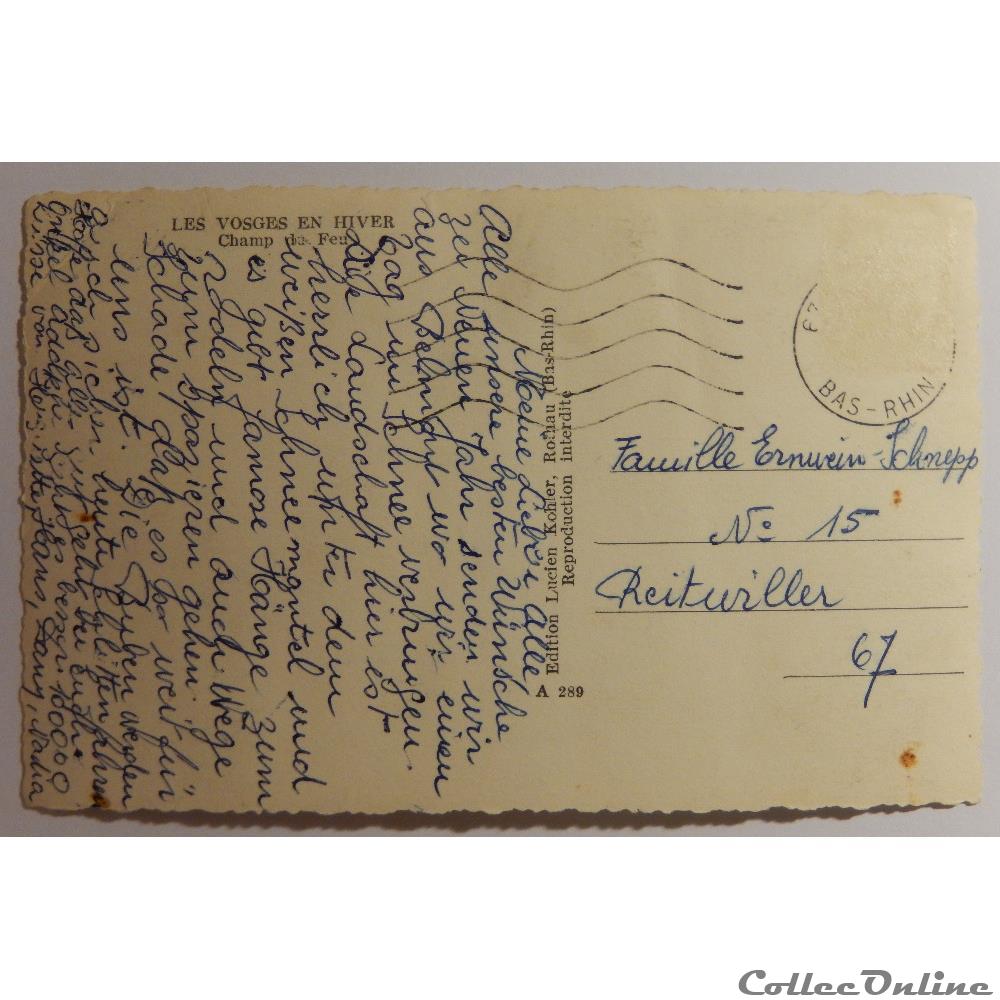 LES VOSGES EN HIVER
Champ du Feu
Meine Lieben Alle
All unsere besten Wünsche
zei Neuen Jahr senden wir
aus Belmont wo wir einen
Tag im Schnee verbringen.
Die Landschaft hier ist
herrlich unter dem
weißen Schneemantel und
es gibt famose Hänge zum
Rodeln und auch Wege
zum spazieren gehen.
Schade daß es so weit für
uns ist. Die Buben werden
auch
Hoffe daß alle
besser. 10000
von Hans, Nadia
Edition Lucien Kohler, Rothau (Bas-Rhin)
Reproduction interdite
A 289
67
BAS-RHIN
Famille Ernwein-Schnepp
No 15
Reitwiller
67
CollecOnline